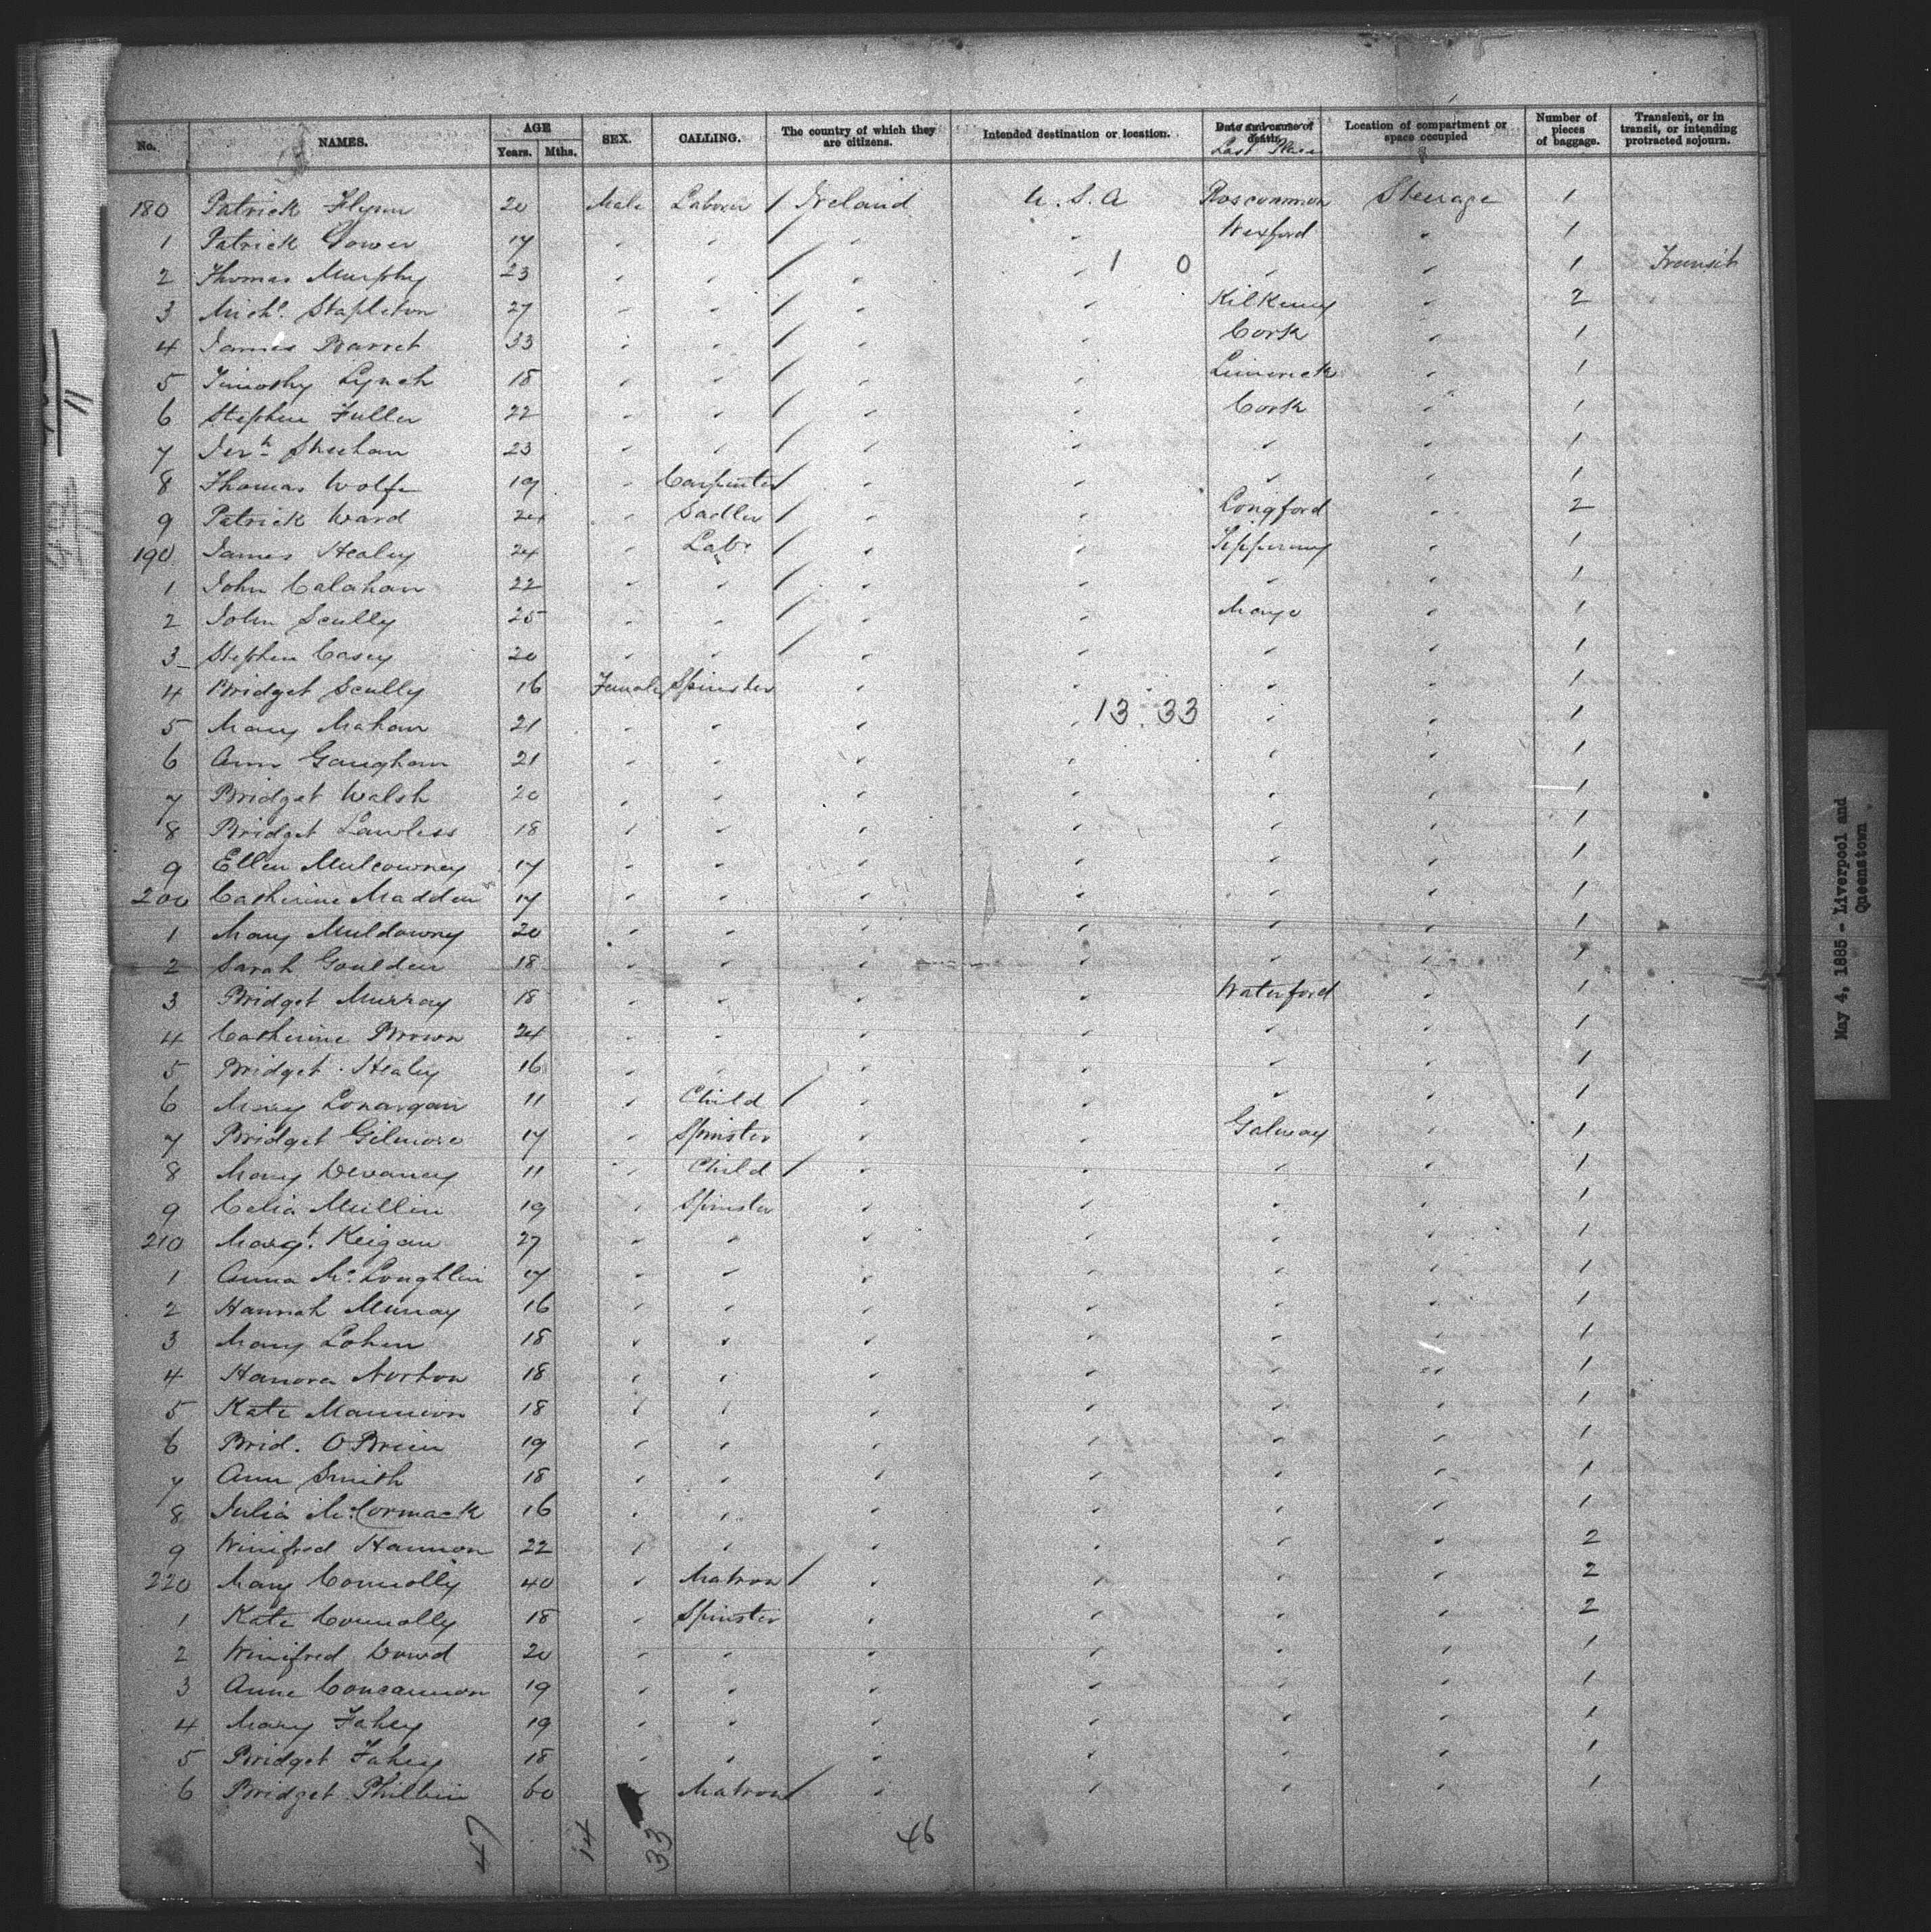 No. NAMES. AGE Years. Mths. SEX. CALLING. The country of which they are citizens. Intended destination or location. Date and cause of death. Last Place Location of compartment or space occupied Number of pieces of baggage. Transient, or in transit, or intending protracted sojourn.
180 Patrick Flynn 20 Male Laborer / Ireland U.S.A Roscommon Steerage 1
1 Patrick Gower 17 " " / " " Wexford " 1
2 Thomas Murphy 23 " " / " " 1 0 " " 1 Transit
3 Michl. Stapleton 27 " " / " " Kilkenny " 2
4 James Barret 33 " " / " " Cork " 1
5 Timothy Lynch 18 " " / " " Limerick " 1
6 Stephen Fuller 22 " " / " " Cork " 1
7 Jerh Sheehan 23 " " / " " " " 1
8 Thomas Wolfe 19 " Carpenter / " " " " 1
9 Patrick Ward 24 " Sadler / " " Longford " 2
190 James Healey 24 " Labr / " " Tipperary " 1
1 John Calahan 22 " " / " " " " 1
2 John Scully 25 " " / " " Mayo " 1
3 Stephen Casey 20 " " / " " " " 1
4 Bridget Scully 16 Female Spinster " " " " 1
5 Mary Mahon 21 " " " " 13.33 " " 1
6 Ann Gaughan 21 " " " " " " 1
7 Bridget Walsh 20 " " " " " " 1
8 Bridget Lawless 18 " " " " " " 1
9 Ellen Mulcowney 17 " " " " " " 1
200 Catherine Madden 17 " " " " " " 1
1 Mary Muldowny 20 " " " " " " 1
2 Sarah Goulden 18 " " " " " " 1
3 Bridget Murray 18 " " " " Waterford " 1
4 Catherine Brown 24 " " " " " " 1
5 Bridget Healy 16 " " " " " " 1
6 Mary Lonargan 11 " Child / " " " " 1
7 Bridget Gilmore 17 " Spinster " " Galway " 1
8 Mary Devaney 11 " Child / " " " " 1
9 Celia Mullin 19 " Spinster " " " " 1
210 Margt. Keigan 27 " " " " " " 1
1 Anna McLoughlin 17 " " " " " " 1
2 Hannah Murray 16 " " " " " " 1
3 Mary Cohen 18 " " " " " " 1
4 Hanora Norton 18 " " " " " " 1
5 Kate Mannion 18 " " " " " " 1
6 Brid. OBrien 19 " " " " " " 1
7 Ann Smith 18 " " " " " " 1
8 Julia McCormack 16 " " " " " " 1
9 Winifred Hannon 22 " " " " " " 2
220 Mary Connolly 40 " Matron / " " " " 2
1 Kate Connolly 18 " Spinster " " " " 2
2 Winifred Dowd 20 " " " " " " 1
3 Anne Concannon 19 " " " " " " 1
4 Mary Fahey 19 " " " " " " 1
5 Bridget Fahey 18 " " " " " " 1
6 Bridget Philbin 60 " Matron / " " " " 1
47 14 33 46
11
May 4, 1885 - Liverpool and
Queenstown